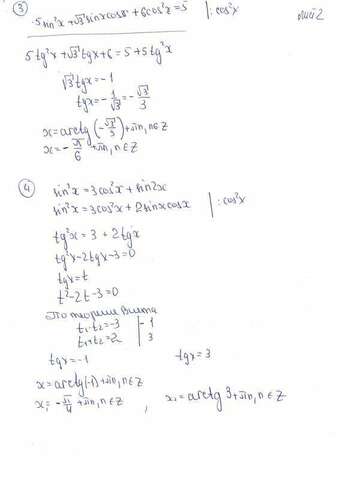 ③ 5sin²x + √3 sinx cosx + 6cos²x = 5 | : cos²x
лист 2
5tg²x + √3 tgx + 6 = 5 + 5tg²x
√3 tgx = -1
tgx = -1/√3 = -√3/3
x = arctg(-√3/3) + πn, n∈Z
x = -π/6 + πn, n∈Z
④ sin²x = 3cos²x + sin2x
sin²x = 3cos²x + 2sinxcosx | : cos²x
tg²x = 3 + 2tgx
tg²x - 2tgx - 3 = 0
tgx = t
t² - 2t - 3 = 0
По теореме Виета
t₁·t₂ = -3 | -1
t₁+t₂ = 2 | 3
tgx = -1 tgx = 3
x = arctg(-1) + πn, n∈Z
x₁ = -π/4 + πn, n∈Z , x₂ = arctg 3 + πn, n∈Z